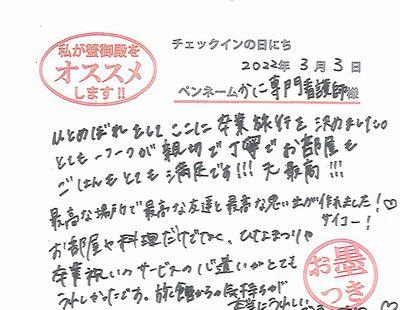 私が蟹御殿を
オススメ
します!!
チェックインの日にち
2022年 3月 3日
ペンネーム かに専門看護師様
ひとめぼれをして ここに 卒業旅行を 決めました。
とても が 親切で 丁寧で お部屋も
ごはんもとても 満足です!!! 最高!!!
最高な場所で最高な友達と最高な思い出が作れました!♡
サイコー!
お部屋や料理だけでなく、ひなまつりや
卒業祝いのサービスの心遣いがとても
うれしかったです。旅館からの気持ちが
お墨
つき